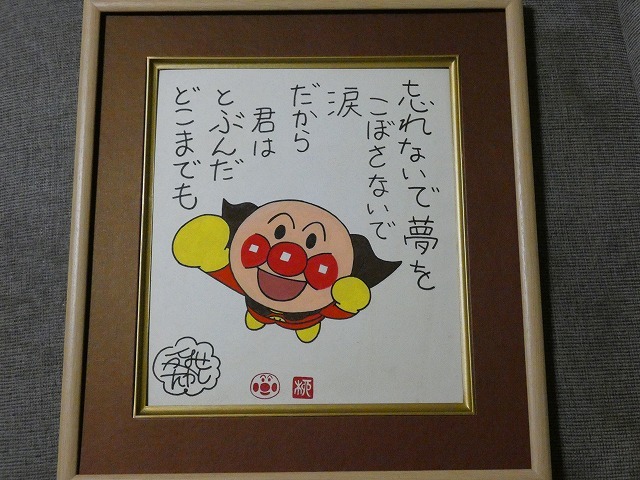 忘れないで夢を
こぼさないで
涙
だから
君は
とぶんだ
どこまでも
やなせたかし
柳